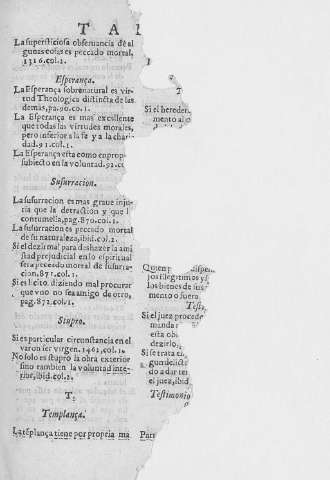 T A
La supersticiosa obseruancia de al
gunas cosas es peccado mortal.
1316.col.1.
Esperança.
La Esperança sobrenatural es vir-
tud Theologica distincta de las
demas, pa.90.co.1.
La Esperança es mas excellente
que todas las virtudes morales,
pero inferior a la fe y a la chari-
dad.91.col.1.
La Esperança esta como en prop
subiecto en la voluntad.92.co
Susurracion.
La susurracion es mas graue inju-
ria que la detraction y que l
contumelia, pag.870.col.1.
La susurracion es peccado mortal
de su naturaleza, ibid.col.1.
Si el dezir mal para deshazer la ami
stad prejudicial en lo espiritual
sera peccado mortal de susurra-
cion, 871.col.1.
Si es licito diziendo mal procurar
que vno no sea amigo de otro,
pag.872.col.1.
Stupro.
Si es particular circunstancia en el
varon ser virgen.1461.col.1.
No solo es stupro la obra exterior
sino tambien la voluntad inte-
rior, ibid.col.2.
T.
Templança.
La templança tiene por propria ma
T
Si el hereder
mento al
Quien p dispen
los legitimos y
los bienes de su
mento o fuera
Testi
Si el juez procede
mandar
esta ob
dezirlo,
Si se trata
gun delicto
do a dar te
el juez, ibid
Testimonio
Parr